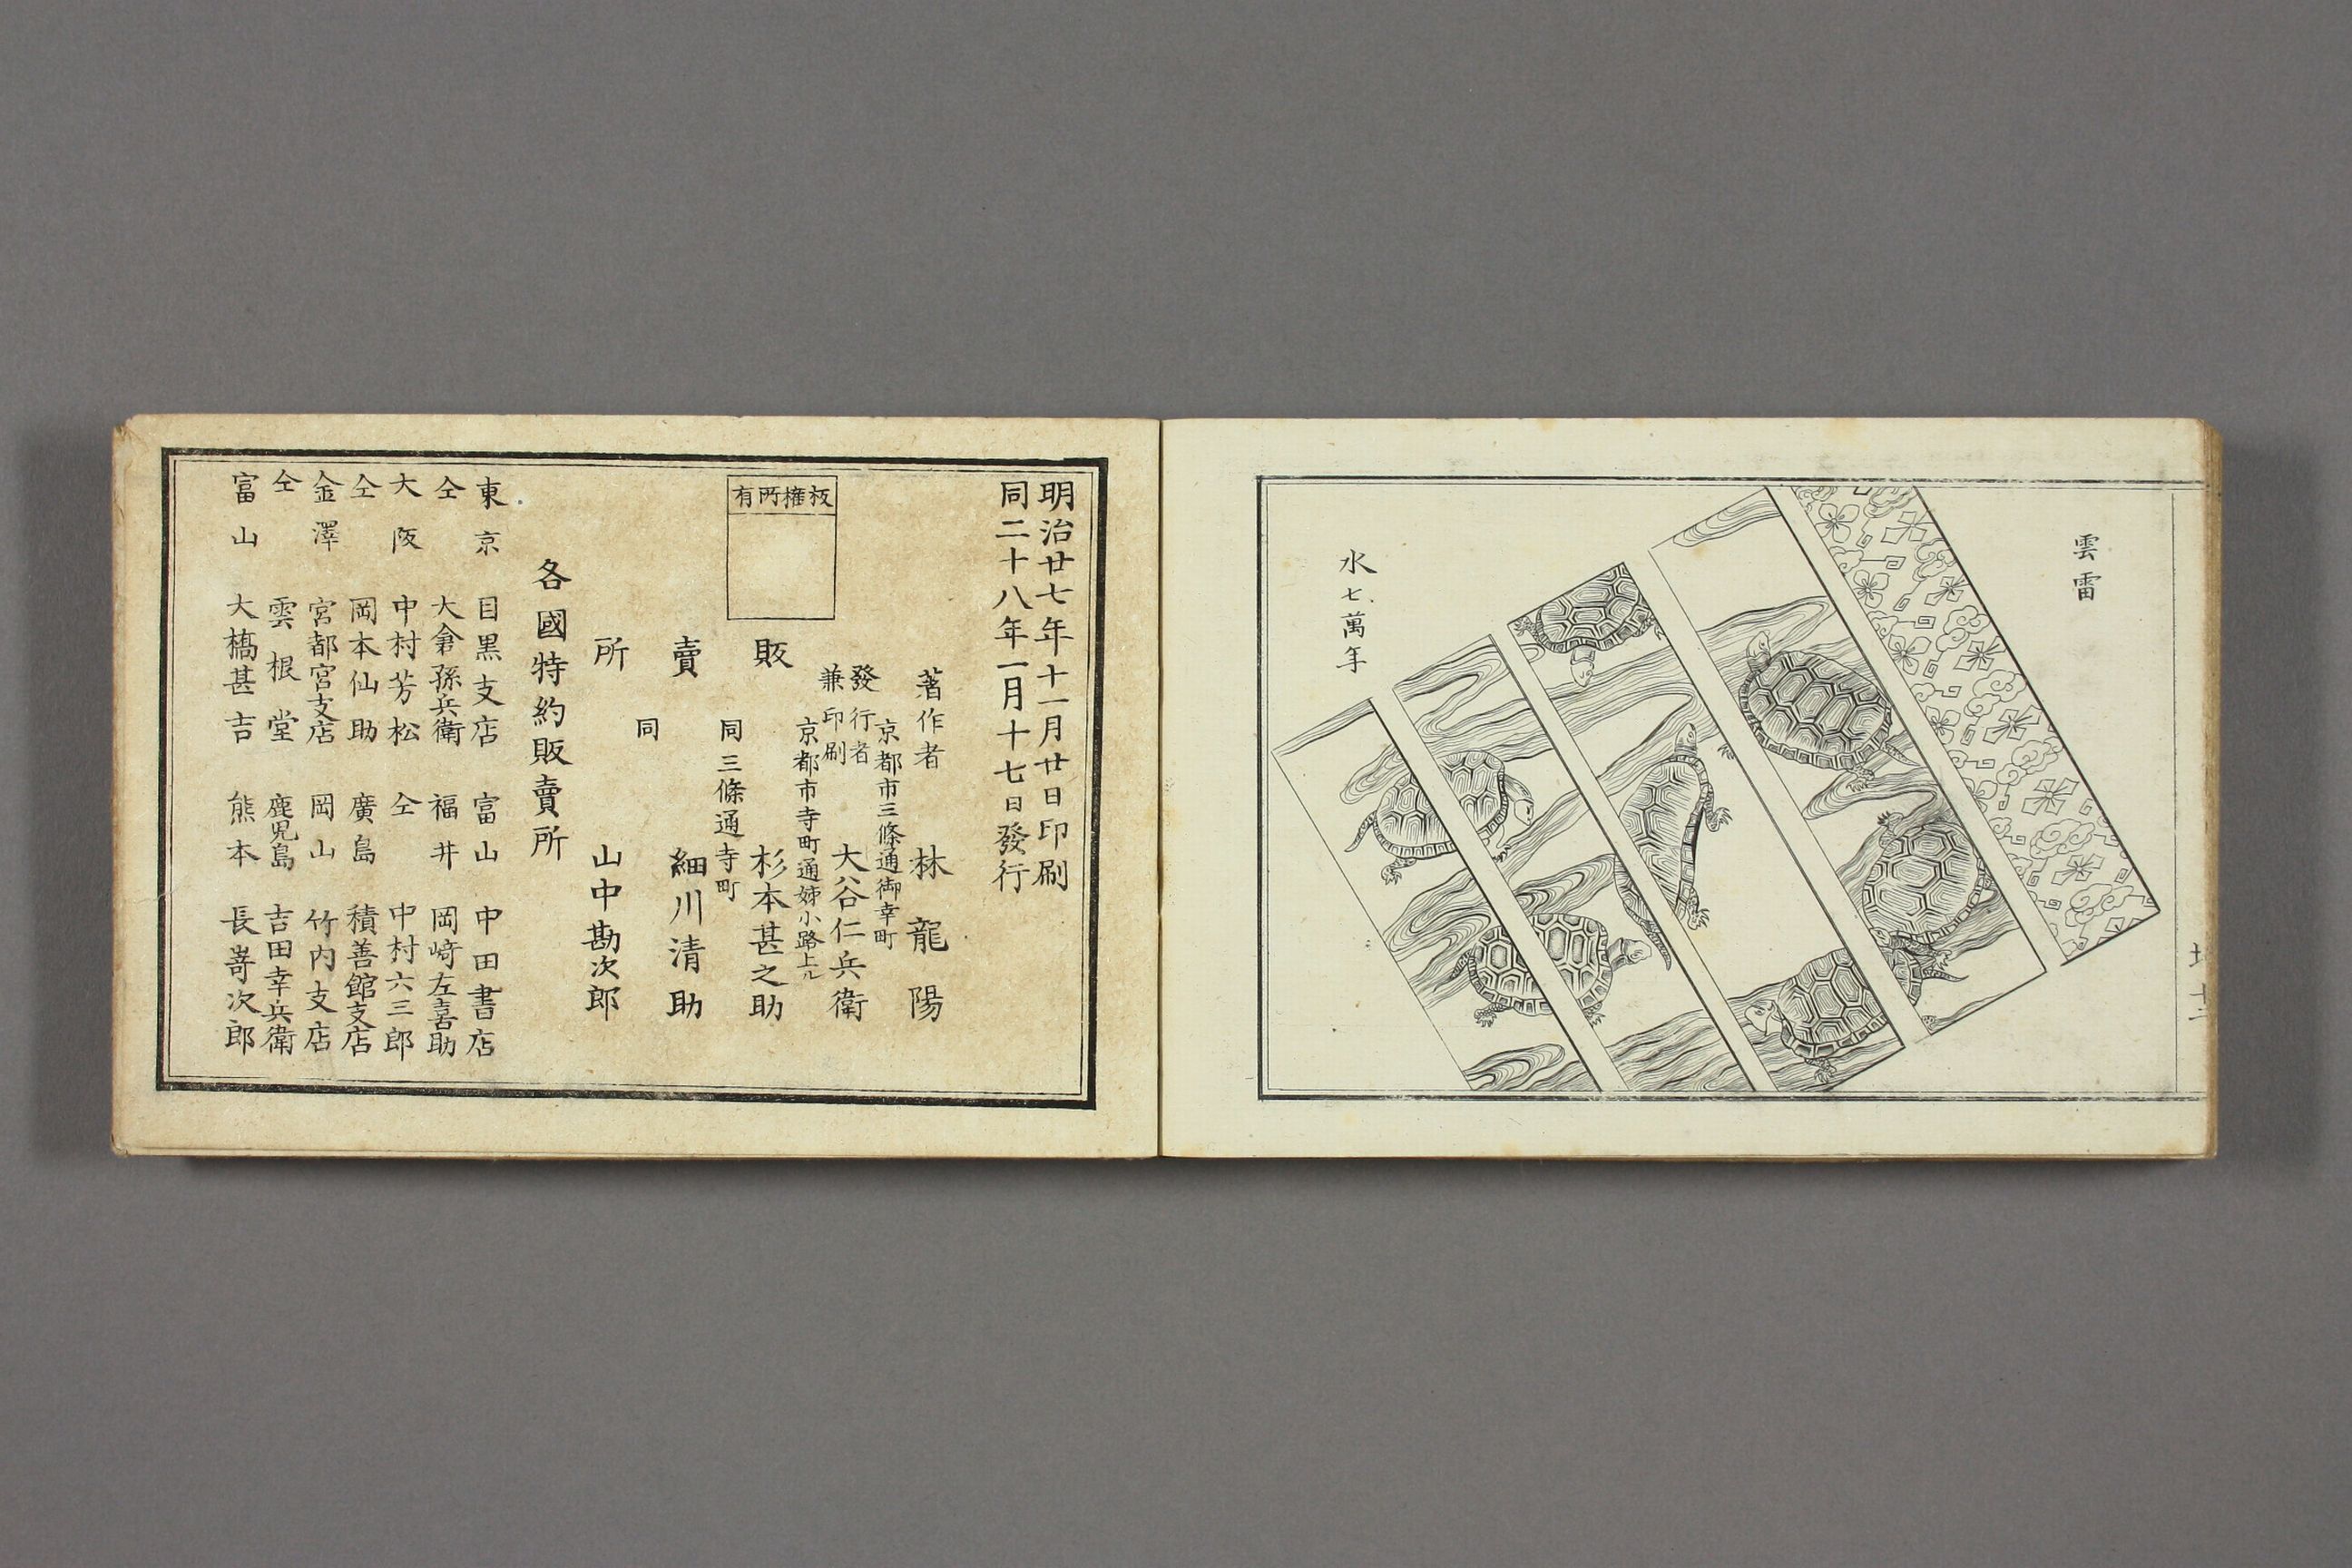 雲雷
水七萬年
明治廿七年十一月廿日印刷
同二十八年一月十七日發行
板權所有
著作者 林龍陽
京都市三條通御幸町
發行者
兼印刷 大谷仁兵衛
京都市寺町通姉小路上ル
販賣所
杉本甚之助
同三條通寺町
細川清助
同
山中勘次郎
各國特約販賣所
東京 目黒支店 富山 中田書店
仝 大倉孫兵衛 福井 岡﨑左喜助
大阪 中村芳松 仝 中村六三郎
仝 岡本仙助 廣島 積善館支店
金澤 宮都宮支店 岡山 竹内支店
仝 雲根堂 鹿児島 吉田幸兵衛
富山 大橋甚吉 熊本 長嵜次郎